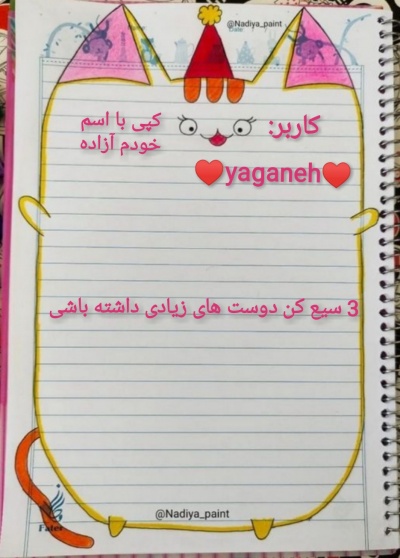 @Nadiya_paint
Date
کاربر:
♥️yaganeh♥️
کپی با اسم
خودم آزاده
3 سیع کن دوست های زیادی داشته باشی
@Nadiya_paint
Fater